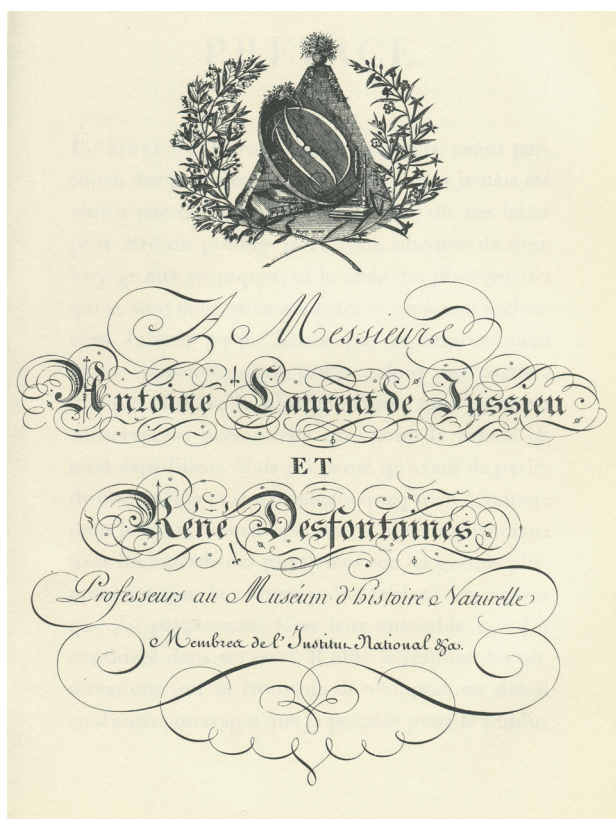 A Messieurs
Antoine Laurent de Jussieu
ET
Réné Desfontaines
Professeurs au Muséum d'histoire Naturelle
Membres de l'Institut National &a.